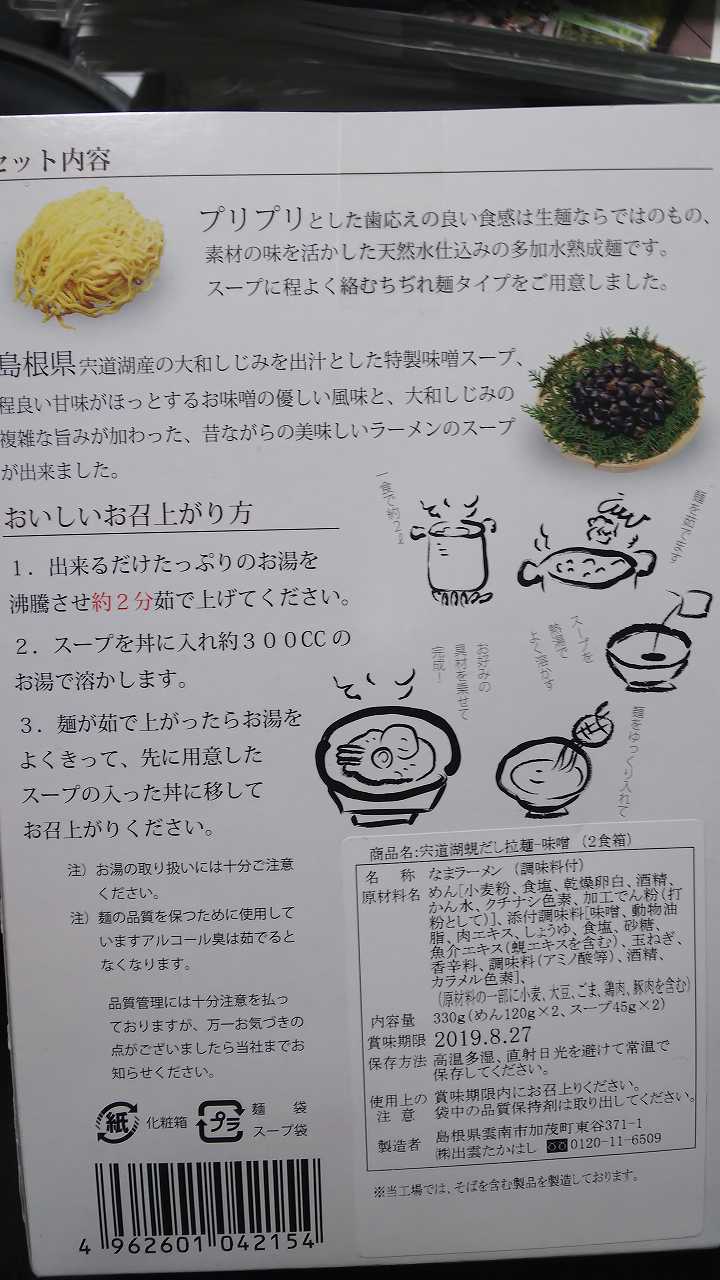 セット内容
プリプリとした歯応えの良い食感は生麺ならではのもの、
素材の味を活かした天然水仕込みの多加水熟成麺です。
スープに程よく絡むちぢれ麺タイプをご用意しました。
島根県宍道湖産の大和しじみを出汁とした特製味噌スープ、
程良い甘味がほっとするお味噌の優しい風味と、大和しじみの
複雑な旨みが加わった、昔ながらの美味しいラーメンのスープ
が出来ました。
おいしいお召上がり方
1．出来るだけたっぷりのお湯を
沸騰させ約２分茹で上げてください。
2．スープを丼に入れ約３００CCの
お湯で溶かします。
3．麺が茹で上がったらお湯を
よくきって、先に用意した
スープの入った丼に移して
お召上がりください。
一食で約2ℓ
麺を茹で上げ
スープを
熱湯で
よく溶かす
麺をゆっくり入れて
お好みの
具材を乗せて
完成！
注）お湯の取り扱いには十分ご注意
ください。
注）麺の品質を保つために使用して
いますアルコール臭は茹でると
なくなります。
品質管理には十分注意を払っ
ておりますが、万一お気づきの
点がございましたら当社までお
知らせください。
紙 化粧箱 プラ 麺　袋
スープ袋
4 962601 042154
商品名:宍道湖蜆だし拉麺-味噌 （2食箱）
名　称 なまラーメン （調味料付）
原材料名 めん[小麦粉、食塩、乾燥卵白、酒精、
かん水、クチナシ色素、加工でん粉(打
粉として)]、添付調味料[味噌、動物油
脂、肉エキス、しょうゆ、食塩、砂糖、
魚介エキス(蜆エキスを含む)、玉ねぎ、
香辛料、調味料(アミノ酸等)、酒精、
カラメル色素]、
(原材料の一部に小麦、大豆、ごま、鶏肉、豚肉を含む)
内容量 330g(めん120g×2、スープ45g×2)
賞味期限 2019.8.27
保存方法 高温多湿、直射日光を避けて常温で
保存してください。
使用上の
注　意 賞味期限内にお召上りください。
袋中の品質保持剤は取り出してください。
製造者 島根県雲南市加茂町東谷371-1
㈱出雲たかはし 0120-11-6509
※当工場では、そばを含む製品を製造しております。